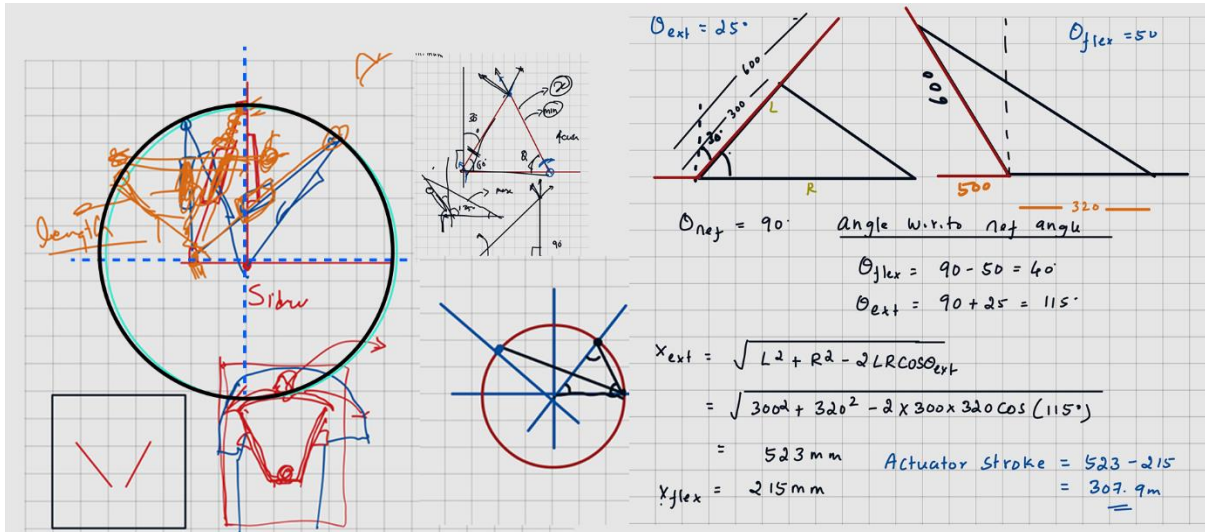 length
Side
30°
60°
min
max
90
θext = 25°
600
300
L
30°
R
θflex = 50
600
500
320
θref = 90° angle w.r.to ref angle
θflex = 90 - 50 = 40°
θext = 90 + 25 = 115°
xext = √L² + R² - 2LRCosθext
= √300² + 320² - 2 x 300 x 320 cos (115°)
= 523 mm
xflex = 215 mm
Actuator stroke = 523 - 215
= 307.9m